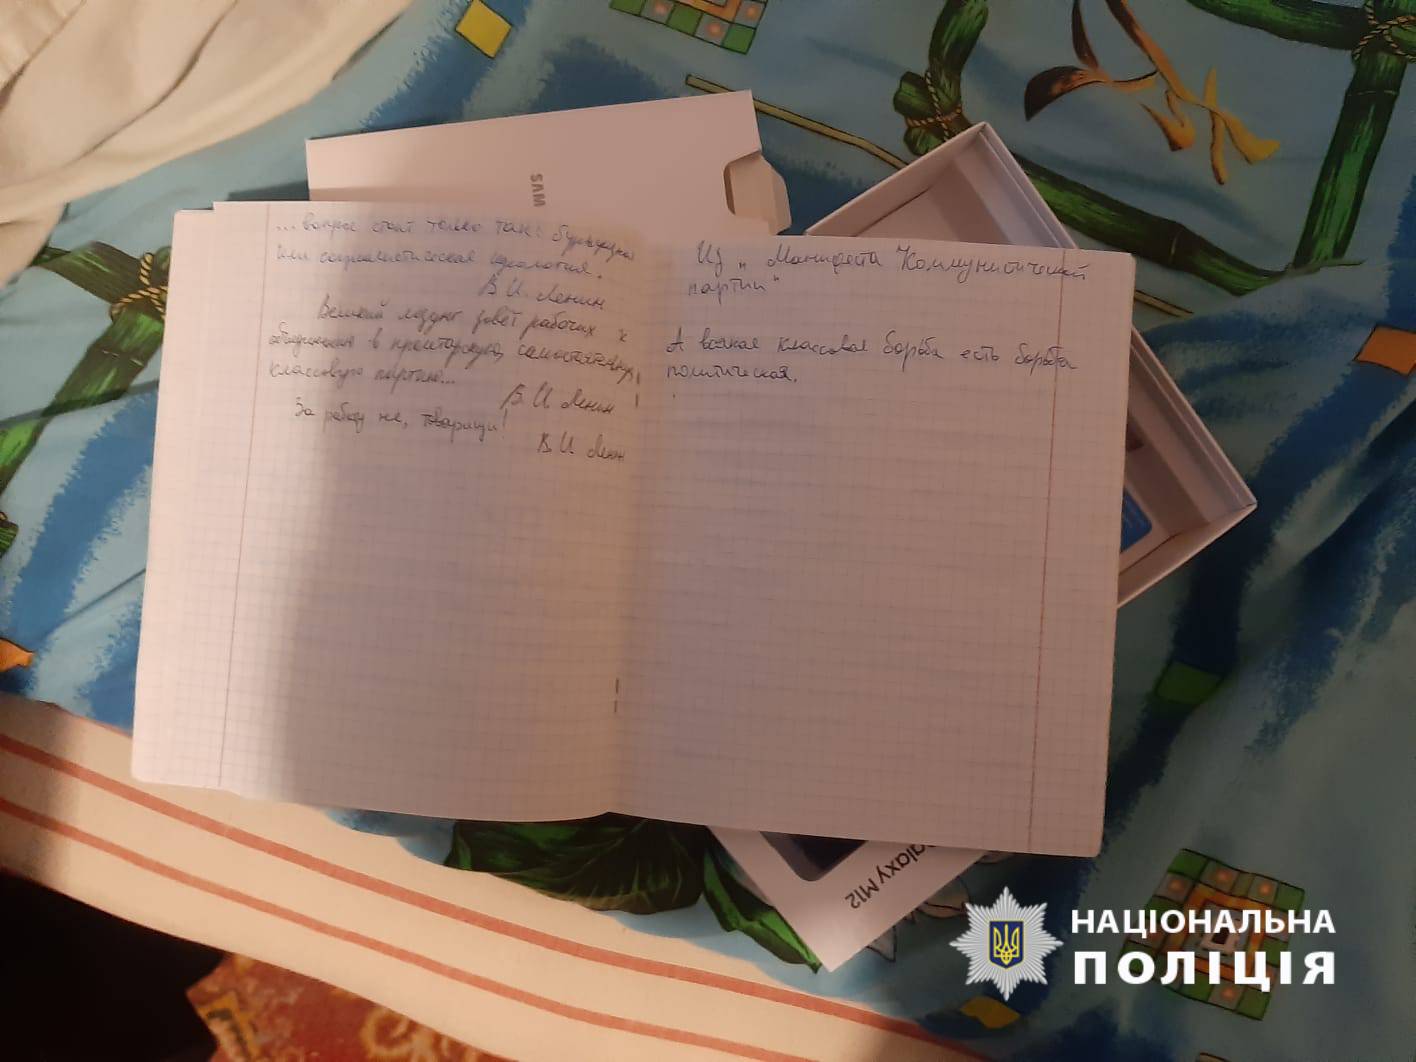 SAM
... вопрос стоит только так: буржуазная
или социалистическая идеология.
В. И. Ленин
Великий лозунг зовёт рабочих к
объединению в пролетарскую, самостоятельную
классовую партию...
В. И. Ленин
За работу же, товарищи!
В. И. Ленин
Из „Манифеста Коммунистической
партии"
А всякая классовая борьба есть борьба
политическая.
Galaxy M12
НАЦІОНАЛЬНА
ПОЛІЦІЯ